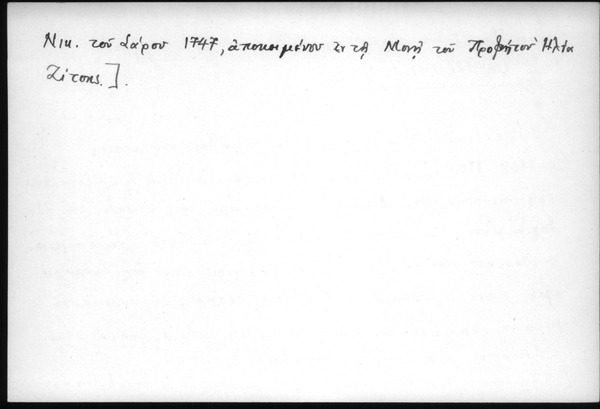 Νικ. τοῦ Σάρου 1747, ἀποκειμένου ἐν τῇ Μονῇ τοῦ Προφήτου Ἠλία
Ζίτσης.].